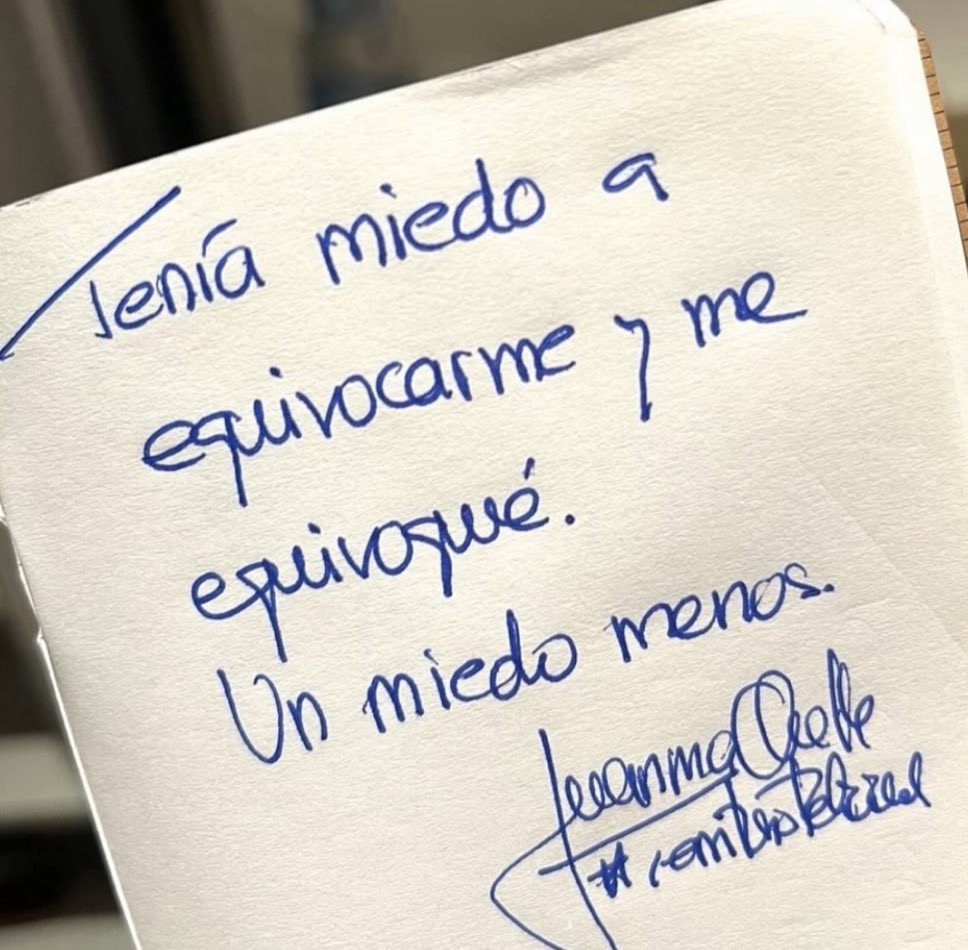 Tenía miedo a
equivocarme y me
equivoqué.
Un miedo menos.
Juanma